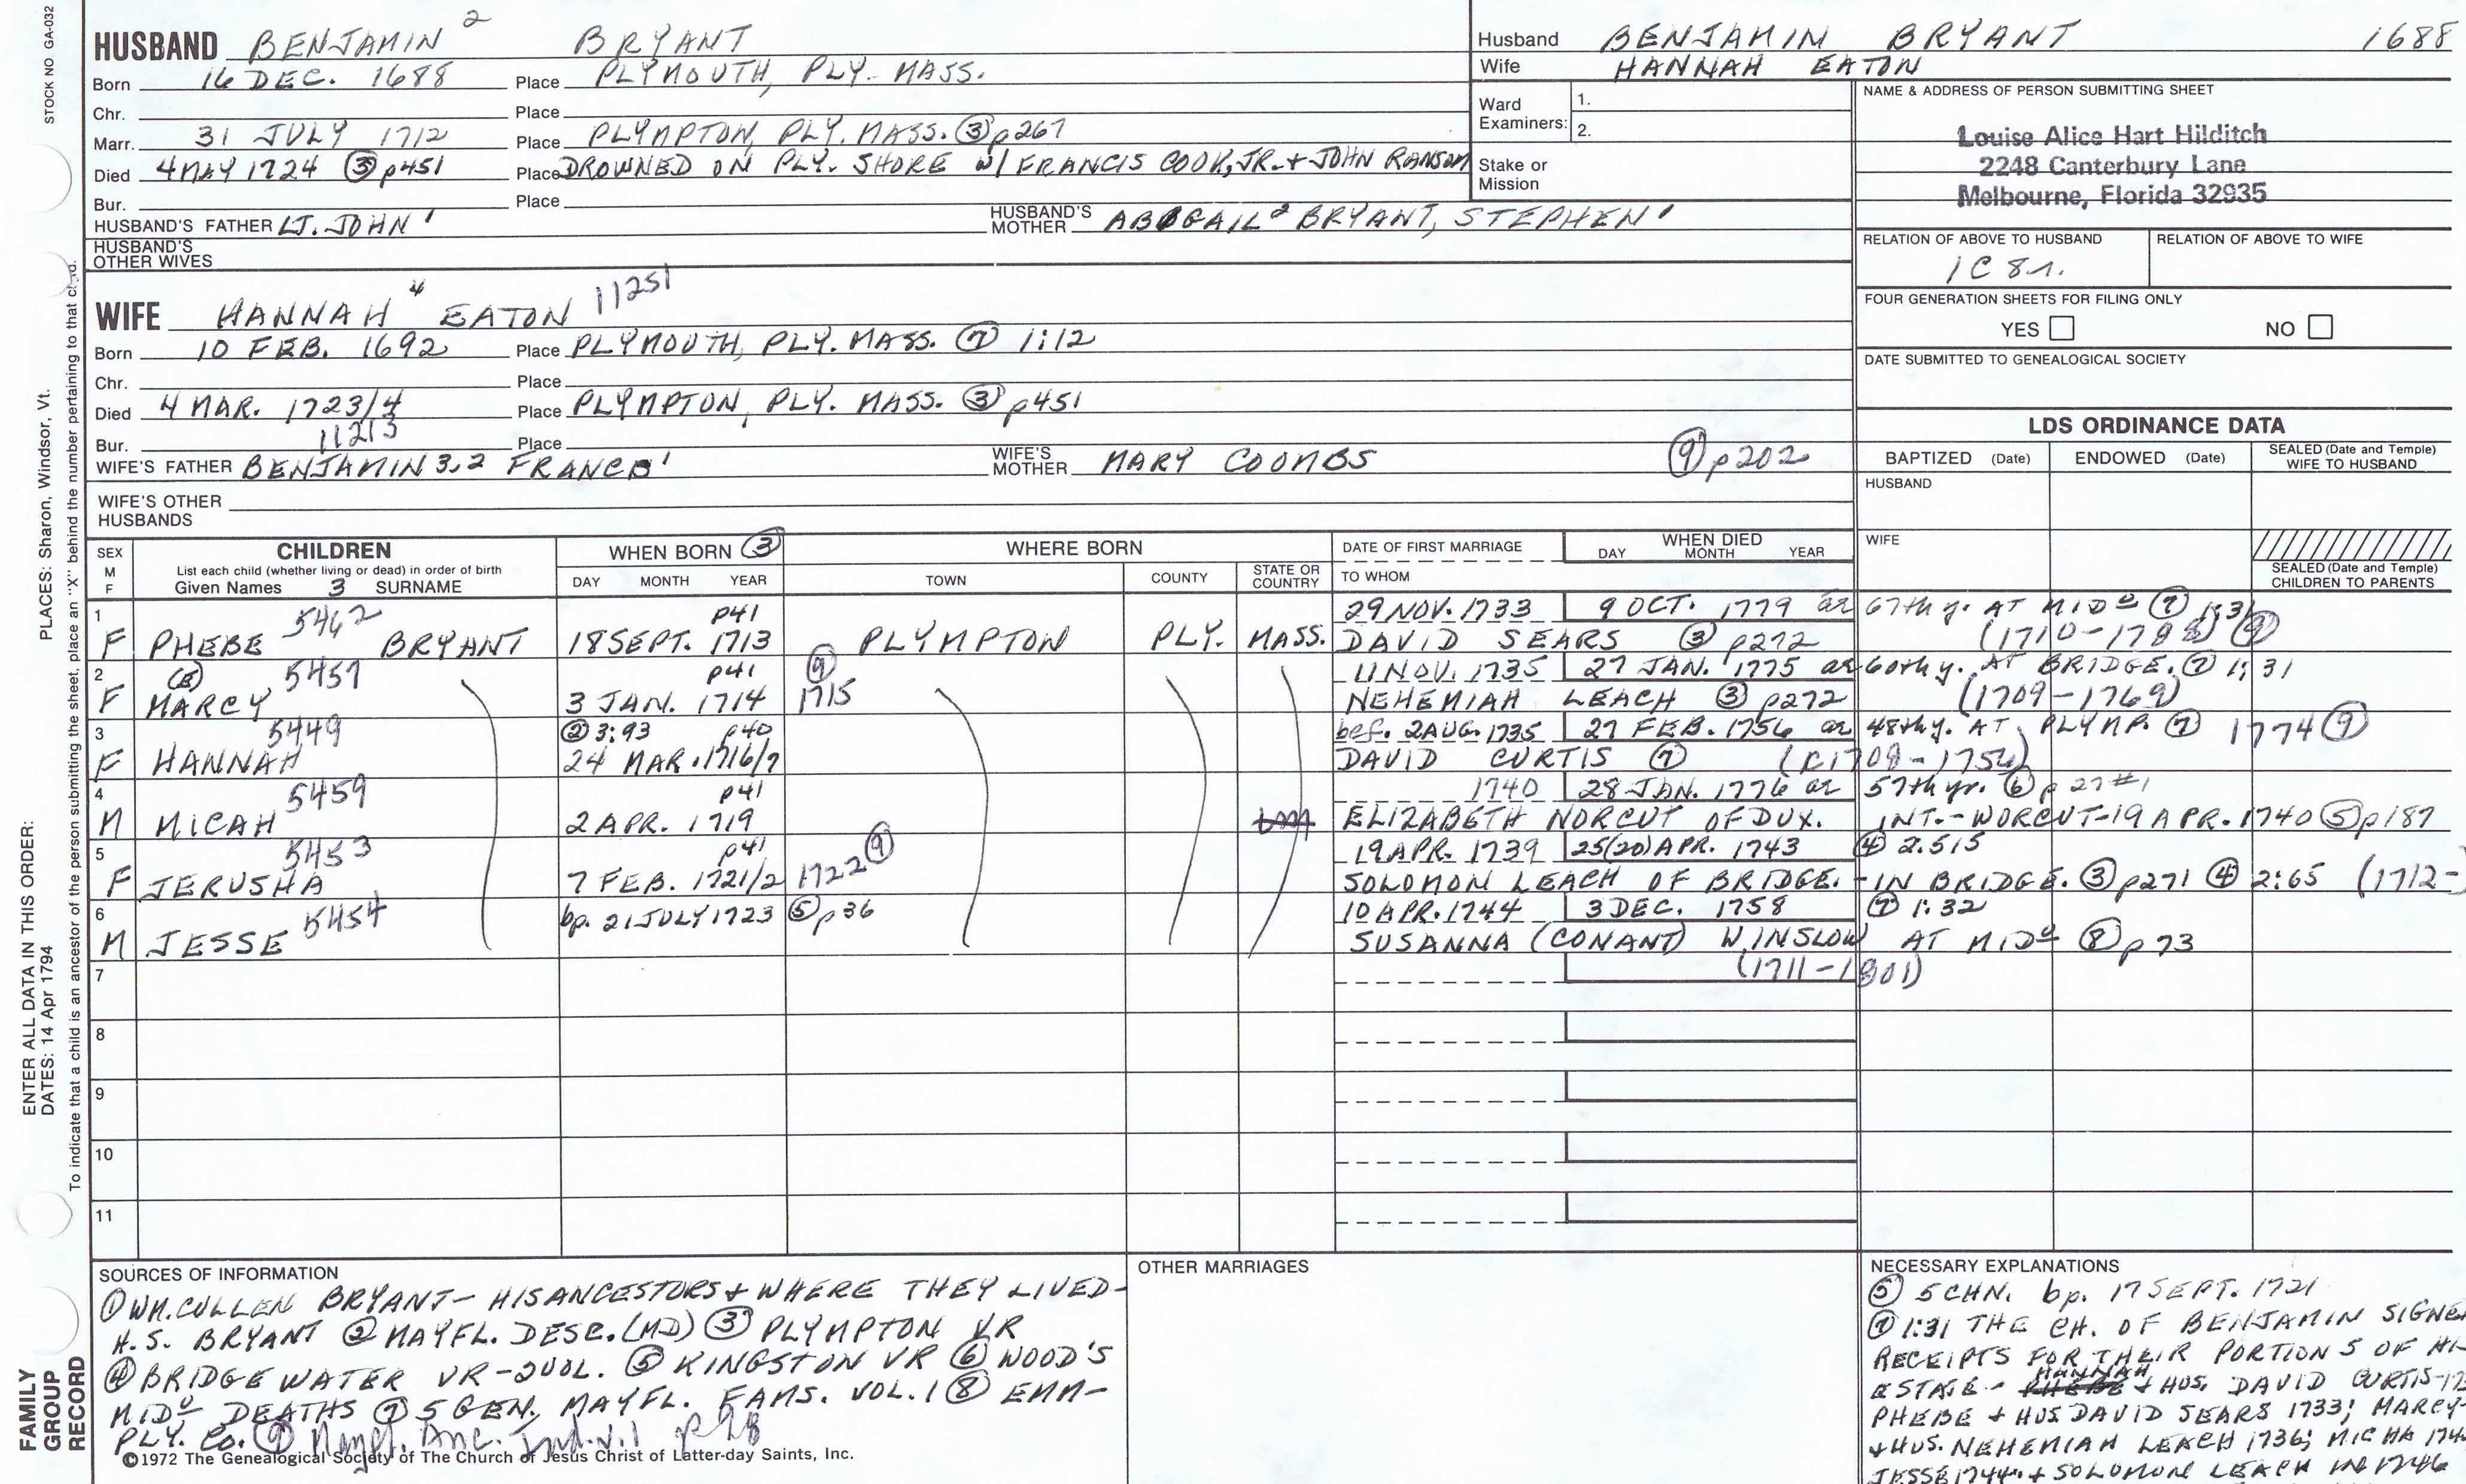 STOCK NO. GA-032
PLACES: Sharon, Windsor, Vt.
ENTER ALL DATA IN THIS ORDER:
DATES: 14 Apr 1794
To indicate that a child is an ancestor of the person submitting the sheet, place an "X" behind the number pertaining to that child.
FAMILY
GROUP
RECORD
HUSBAND BENJAMIN 2 BRYANT
Born 16 DEC. 1688 Place PLYMOUTH, PLY. MASS.
Chr. Place
Marr. 31 JULY 1712 Place PLYMPTON, PLY. MASS. ③ p267
Died 4 MAY 1724 ③ p451 Place DROWNED ON PLY. SHORE w/ FRANCIS COOK, JR. + JOHN RANSOM
Bur. Place
HUSBAND'S FATHER LT. JOHN 1 HUSBAND'S MOTHER ABIGAIL 2 BRYANT, STEPHEN 1
HUSBAND'S OTHER WIVES
WIFE HANNAH 4 EATON 11251
Born 10 FEB. 1692 Place PLYMOUTH, PLY. MASS. ⑦ 1:12
Chr. Place
Died 4 MAR. 1723/4 Place PLYMPTON, PLY. MASS. ③ p451
Bur. 11213 Place
WIFE'S FATHER BENJAMIN 3,2 FRANCIS 1 WIFE'S MOTHER MARY COOMBS ⑨ p202
WIFE'S OTHER HUSBANDS
Husband BENJAMIN BRYANT 1688
Wife HANNAH EATON
Ward Examiners: 1.
2.
Stake or Mission
NAME & ADDRESS OF PERSON SUBMITTING SHEET
Louise Alice Hart Hilditch
2248 Canterbury Lane
Melbourne, Florida 32935
RELATION OF ABOVE TO HUSBAND RELATION OF ABOVE TO WIFE
1C 8r.
FOUR GENERATION SHEETS FOR FILING ONLY
YES NO
DATE SUBMITTED TO GENEALOGICAL SOCIETY
LDS ORDINANCE DATA
BAPTIZED (Date) ENDOWED (Date) SEALED (Date and Temple) WIFE TO HUSBAND
HUSBAND
WIFE
SEALED (Date and Temple) CHILDREN TO PARENTS
SEX M F CHILDREN WHEN BORN ③ WHERE BORN DATE OF FIRST MARRIAGE WHEN DIED
List each child (whether living or dead) in order of birth
Given Names 3 SURNAME DAY MONTH YEAR TOWN COUNTY STATE OR COUNTRY TO WHOM DAY MONTH YEAR
1 5462 p41 29 NOV. 1733 9 OCT. 1779 ae 67th y. AT MIDo ⑦ 1:31
F PHEBE BRYANT 18 SEPT. 1713 PLYMPTON PLY. MASS. DAVID SEARS ③ p272 (1710-1788) ⑨
2 5457 p41 ⑨ 11 NOV. 1735 27 JAN. 1775 ae 60th y. AT BRIDGE. ⑦ 1:31
F MARCY 3 JAN. 1714 1715 NEHEMIAH LEACH ③ p272 (1709-1769)
3 5449 ② 3:93 p40 bef. 2 AUG. 1735 27 FEB. 1756 ae 48th y. AT PLYMP. ⑦ 1774 ⑨
F HANNAH 24 MAR. 1716/7 DAVID CURTIS ⑦
4 5459 p41 1740 28 JAN. 1776 ae 57th yr. ⑥ p 27 #1
M MICAH 2 APR. 1719 ELIZABETH NORCUT OF DUX. INT.-WORCUT-19 APR. 1740 ⑤ p187
5 5453 p41 ⑨ 19 APR. 1739 25(20) APR. 1743 ④ 2:515
F JERUSHA 7 FEB. 1721/2 1722 SOLOMON LEACH OF BRIDGE. - IN BRIDGE. ③ p271 ④ 2:65 (1712-
6 5454 bp. 21 JULY 1723 ⑤ p36 10 APR. 1744 3 DEC. 1758 ⑦ 1:32
M JESSE SUSANNA (CONANT) WINSLOW AT MIDo ⑧ p73
7 (1711-1801)
8
9
10
11
SOURCES OF INFORMATION
① WM. CULLEN BRYANT - HIS ANCESTORS + WHERE THEY LIVED -
H.S. BRYANT ② MAYFL. DESC. (MD) ③ PLYMPTON VR
④ BRIDGEWATER VR - 2 VOL. ⑤ KINGSTON VR ⑥ WOOD'S
MIDo DEATHS ⑦ 5 GEN. MAYFL. FAMS. VOL. 1 ⑧ EMM-
PLY. CO. ⑨ Mayfl. Anc. Ind. v.1 p 28
©1972 The Genealogical Society of The Church of Jesus Christ of Latter-day Saints, Inc.
OTHER MARRIAGES
NECESSARY EXPLANATIONS
⑤ 5 CHN. bp. 17 SEPT. 1721
⑦ 1:31 THE CH. OF BENJAMIN SIGNE
RECEIPTS FOR THEIR PORTIONS OF HI-
ESTATE - HANNAH + HUS. DAVID CURTIS-17
PHEBE + HUS DAVID SEARS 1733; MARCY
+ HUS. NEHEMIAH LEACH 1736; MICHA 174
JESSE 1744 + SOLOMON LEACH IN 1746